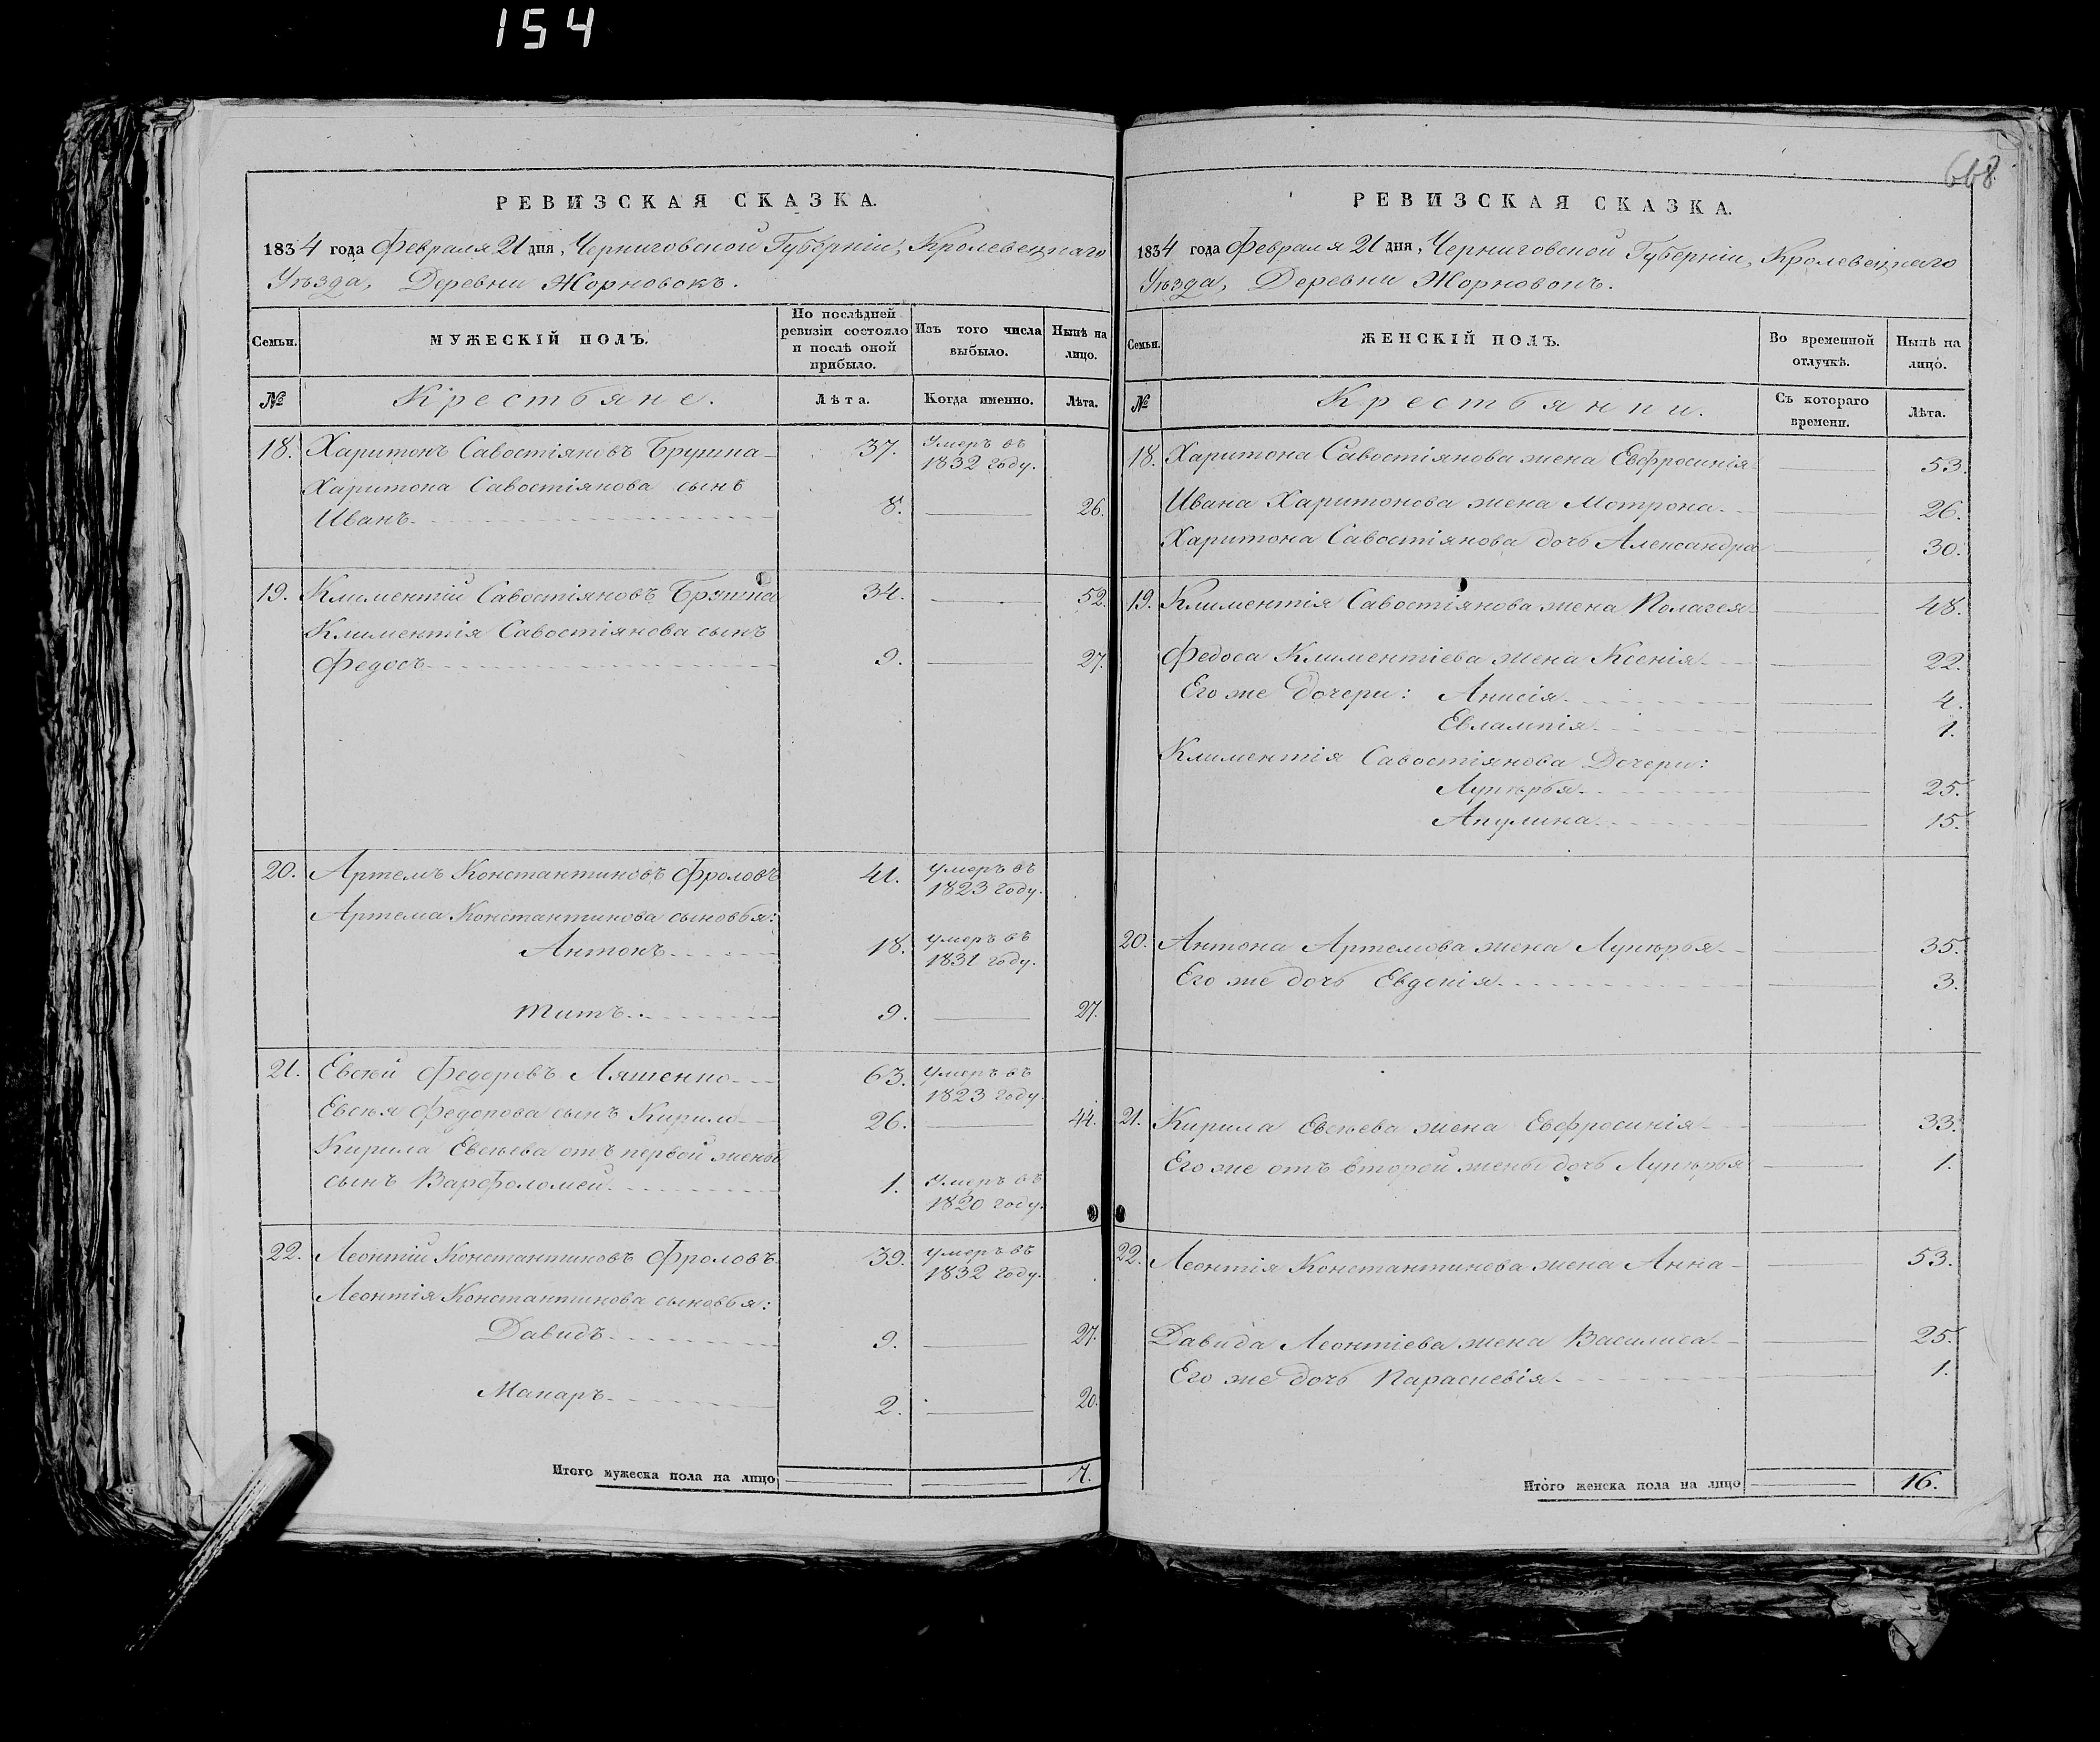 154
668
РЕВИЗСКАЯ СКАЗКА.
1834 года Февраля 21 дня, Черниговской Губерніи, Кролевецкаго
Уѣзда, Деревни Жорновокъ.
Семьи. МУЖЕСКІЙ ПОЛЪ. По послѣдней ревизіи состояло и послѣ оной прибыло. Изъ того числа выбыло. Нынѣ на лицо.
№ Крестьяне. Лѣта. Когда именно. Лѣта.
18. Харитонъ Савостіяновъ 37. Умеръ въ 1832 году.
Харитона Савостіянова сынъ
Иванъ 8. 26.
19. Климентій Савостіяновъ 34. 52.
Климентія Савостіянова сынъ
Федосъ 9. 27.
20. Артемъ Константиновъ Фроловъ 41. умеръ въ 1823 году.
Артема Константинова сыновья:
Антонъ 18. умеръ въ 1831 году.
Титъ 9. 27.
21. Евсѣй Федоровъ Ляшенко 63. умеръ въ 1823 году.
Евсѣя Федорова сынъ Кирило 26. 44.
Кирила Евсѣева отъ первой жены
сынъ Варфоломей 1. умеръ въ 1820 году.
22. Леонтій Константиновъ Фроловъ 39. умеръ въ 1832 году.
Леонтія Константинова сыновья:
Давидъ 9. 27.
Макаръ 2. 20.
Итого мужеска пола на лицо 7.
РЕВИЗСКАЯ СКАЗКА.
1834 года Февраля 21 дня, Черниговской Губерніи, Кролевецкаго
Уѣзда, Деревни Жорновокъ.
Семьи. ЖЕНСКІЙ ПОЛЪ. Во временной отлучкѣ. Нынѣ на лицо.
№ Крестьянки. Съ котораго времени. Лѣта.
18. Харитона Савостіянова жена Евфросинія 53.
Ивана Харитонова жена Мотрона 26.
Харитона Савостіянова дочь Александра 30.
19. Климентія Савостіянова жена Пелагея 48.
Федоса Климентіева жена Ксенія 22.
Его же дочери: Анисія 4.
Евлампія 1.
Климентія Савостіянова Дочери:
Лукѣрья 25.
Акулина 15.
20. Антона Артемова жена Лукѣрья 35.
Его же дочь Евдокія 3.
21. Кирила Евсѣева жена Евфросинія 33.
Его же отъ второй жены дочь Лукѣрья 1.
22. Леонтія Константинова жена Анна 53.
Давида Леонтіева жена Василиса 25.
Его же дочь Параскевія 1.
Итого женска пола на лицо 16.